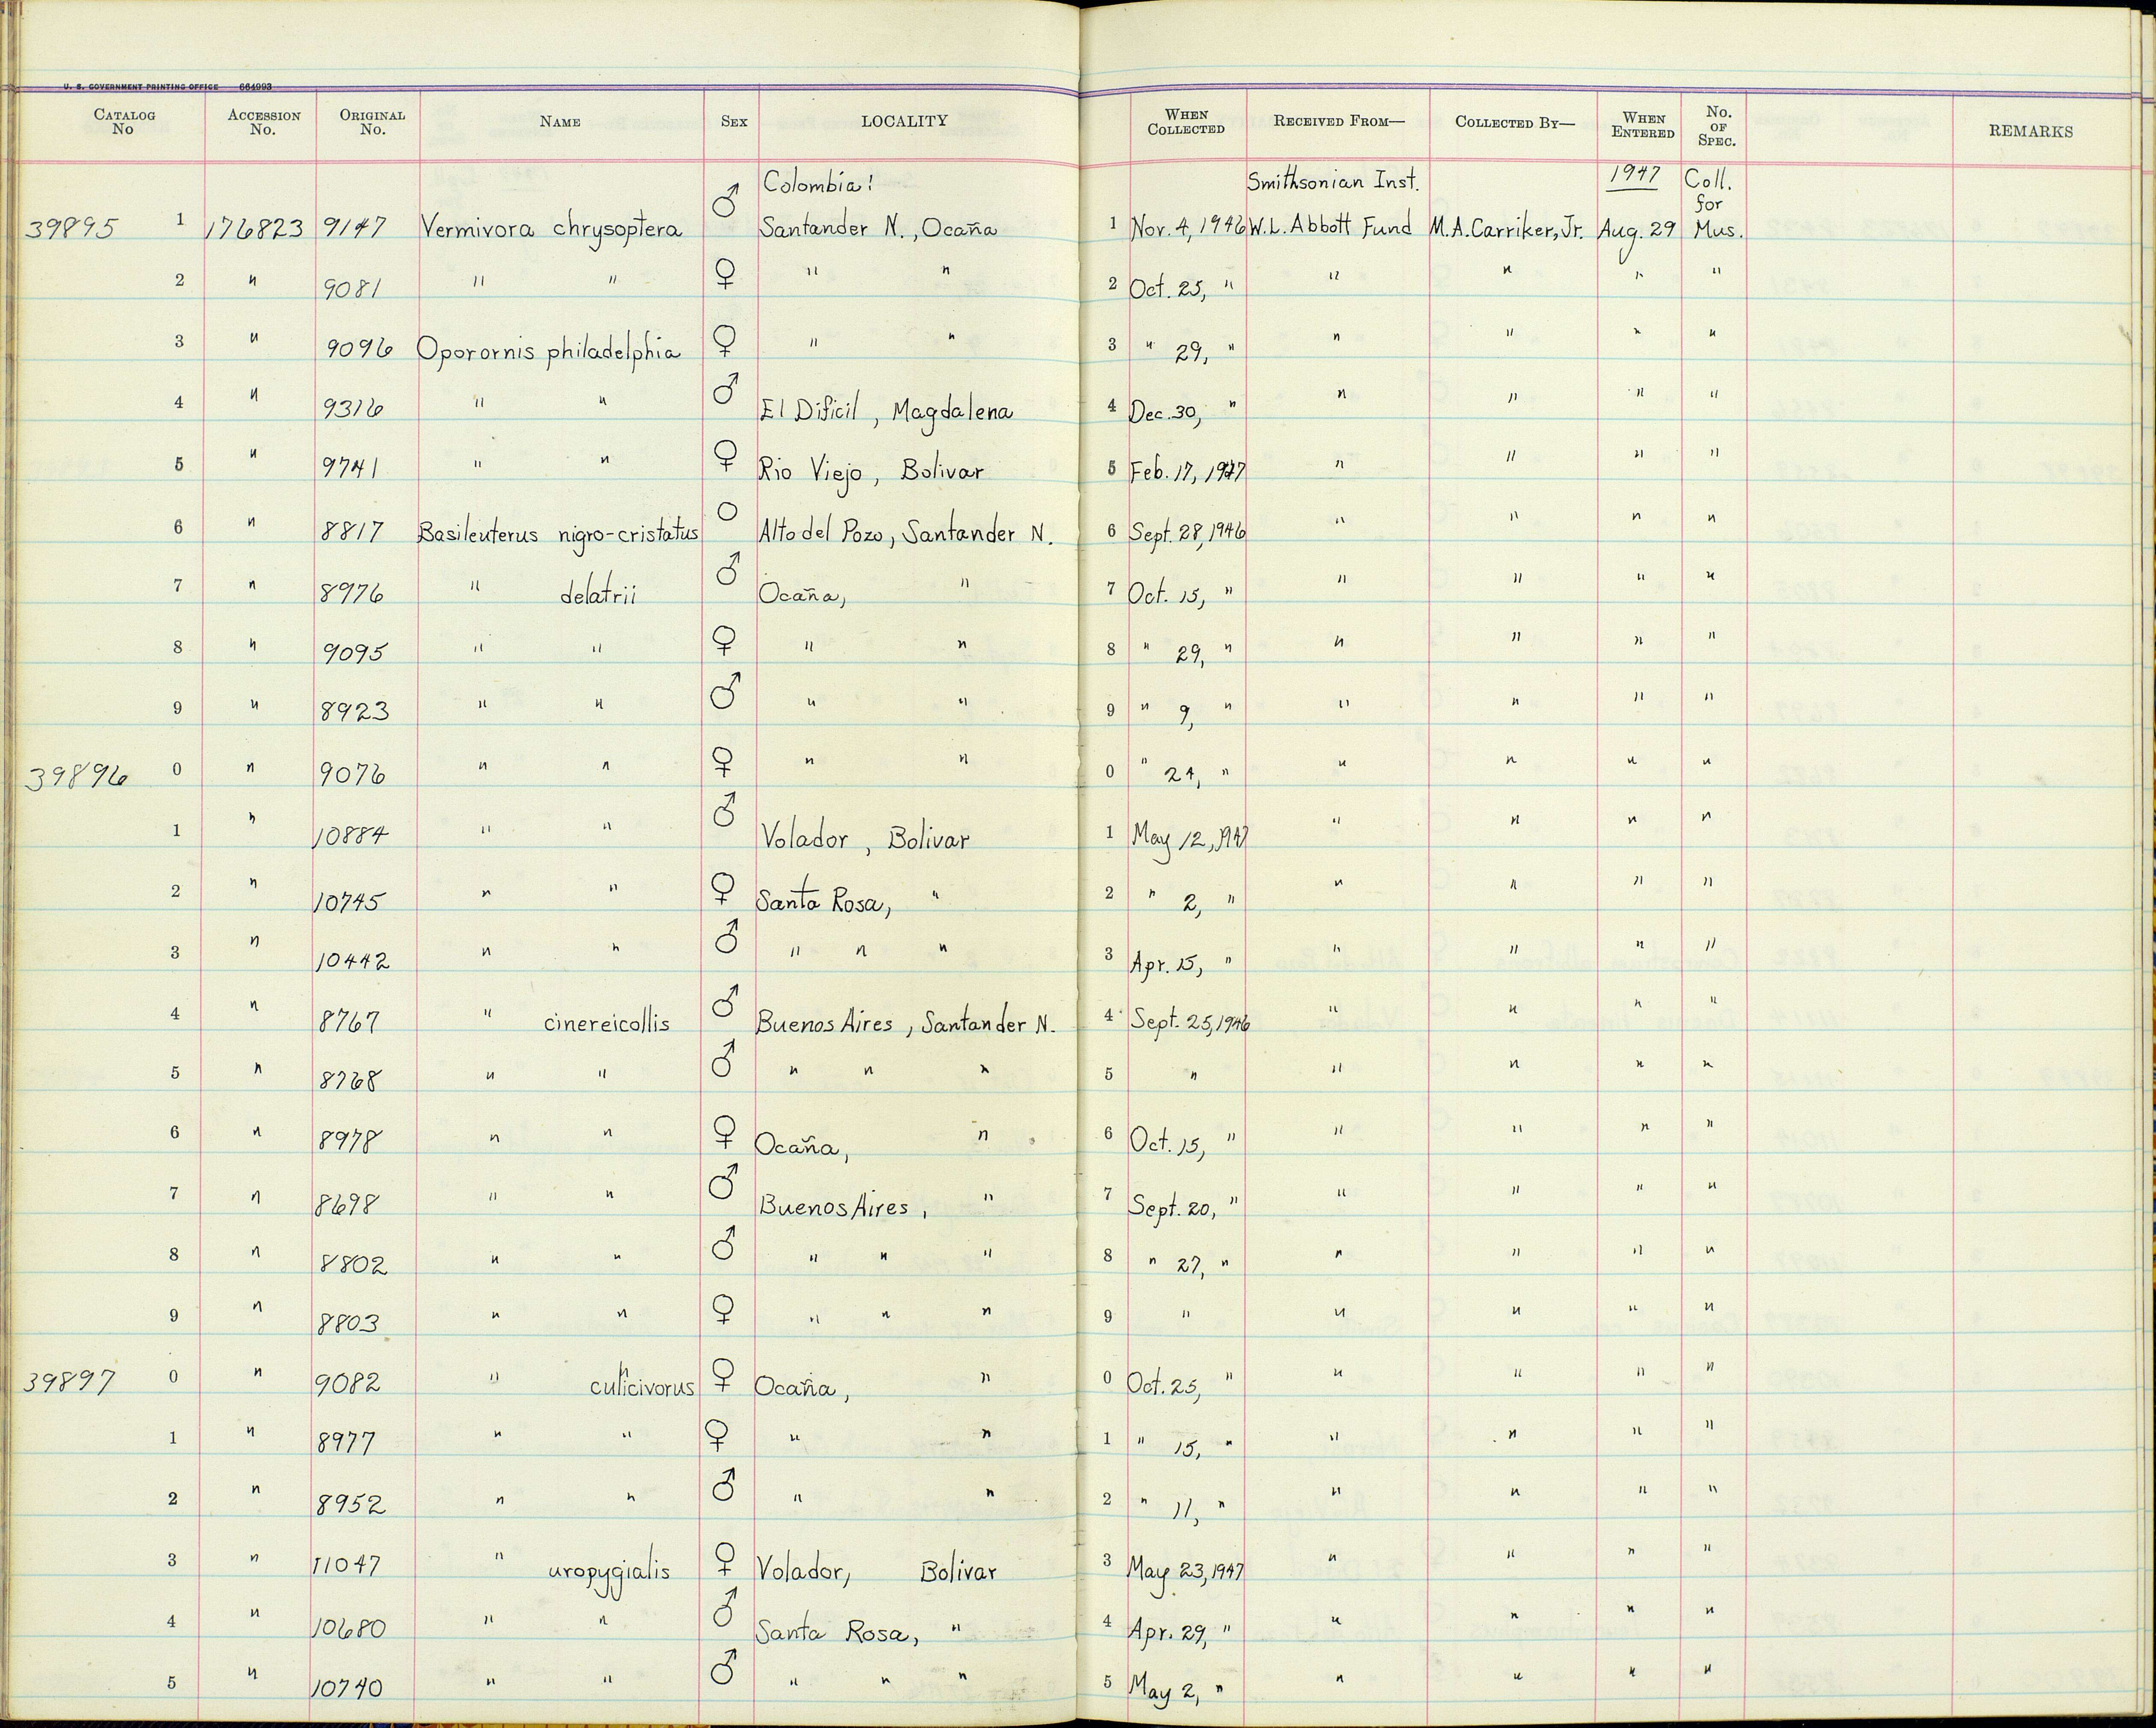 U. S. GOVERNMENT PRINTING OFFICE 664993
CATALOG No ACCESSION No. ORIGINAL No. NAME SEX LOCALITY WHEN COLLECTED RECEIVED FROM— COLLECTED BY— WHEN ENTERED No. OF SPEC. REMARKS
Colombia! Smithsonian Inst. 1947 Coll. for
39895 1 176823 9147 Vermivora chrysoptera ♂ Santander N., Ocaña 1 Nov. 4, 1946 W.L. Abbott Fund M.A. Carriker, Jr. Aug. 29 Mus.
2 " 9081 " " ♀ " " 2 Oct. 25, " " " " "
3 " 9096 Oporornis philadelphia ♀ " " 3 " 29, " " " " "
4 " 9316 " " ♂ El Dificil, Magdalena 4 Dec. 30, " " " " "
5 " 9741 " " ♀ Rio Viejo, Bolivar 5 Feb. 17, 1947 " " " "
6 " 8817 Basileuterus nigro-cristatus O Alto del Pozo, Santander N. 6 Sept. 28, 1946 " " " "
7 " 8976 " delatrii ♂ Ocaña, " 7 Oct. 15, " " " " "
8 " 9095 " " ♀ " " 8 " 29, " " " " "
9 " 8923 " " ♂ " " 9 " 9, " " " " "
39896 0 " 9076 " " ♀ " " 0 " 24, " " " " "
1 " 10884 " " ♂ Volador, Bolivar 1 May 12, 1947 " " " "
2 " 10745 " " ♀ Santa Rosa, " 2 " 2, " " " " "
3 " 10442 " " ♂ " " " 3 Apr. 15, " " " " "
4 " 8767 " cinereicollis ♂ Buenos Aires, Santander N. 4 Sept. 25, 1946 " " " "
5 " 8768 " " ♂ " " " 5 " " " " "
6 " 8978 " " ♀ Ocaña, " 6 Oct. 15, " " " " "
7 " 8698 " " ♂ Buenos Aires, " 7 Sept. 20, " " " " "
8 " 8802 " " ♂ " " " 8 " 27, " " " " "
9 " 8803 " " ♀ " " " 9 " " " " "
39897 0 " 9082 " culicivorus ♀ Ocaña, " 0 Oct. 25, " " " " "
1 " 8977 " " ♀ " " 1 " 15, " " " " "
2 " 8952 " " ♂ " " 2 " 11, " " " " "
3 " 11047 " uropygialis ♀ Volador, Bolivar 3 May 23, 1947 " " " "
4 " 10680 " " ♂ Santa Rosa, " 4 Apr. 29, " " " " "
5 " 10740 " " ♂ " " " 5 May 2, " " " " "